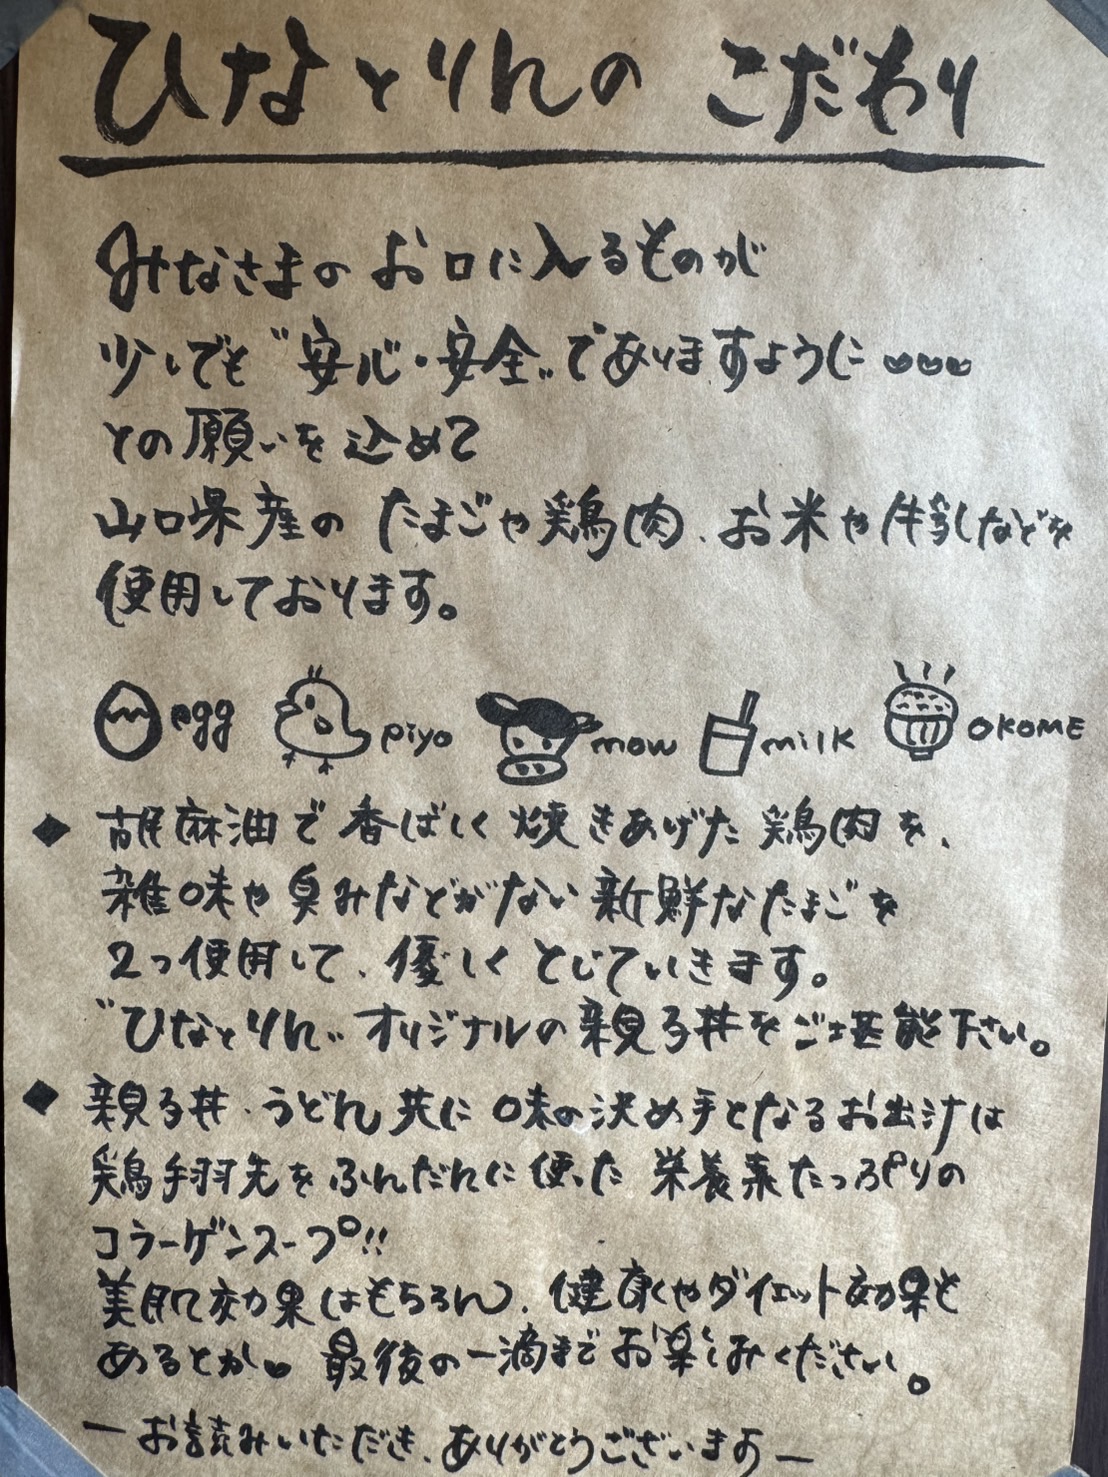 ひなとりんの こだわり
みなさまの お口に入るものが
少しでも〝安心・安全〟でありますように
との願いを込めて
山口県産の たまごや鶏肉、お米や牛乳などを
使用しております。
egg piyo mow milk OKOME
◆ 胡麻油で香ばしく焼きあげた鶏肉を、
雑味や臭みなどがない新鮮なたまごを
2つ使用して、優しくとじていきます。
〝ひなとりん〟オリジナルの親子丼をご堪能下さい。
◆ 親子丼、うどん共に味の決め手となるお出汁は
鶏手羽先をふんだんに使った栄養素たっぷりの
コラーゲンスープ!!
美肌効果はもちろん、健康やダイエット効果も
あるとか。最後の一滴までお楽しみください。
ーお読みいただき、ありがとうございますー